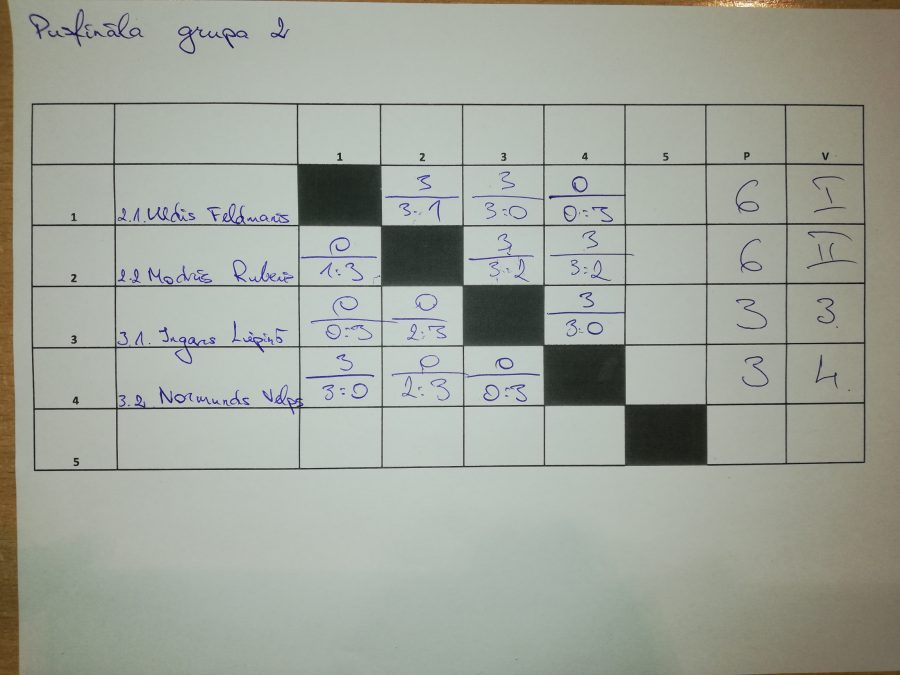 Pusfināla grupa 2
1 2 3 4 5 P V
1 2.1. Uldis Feldmanis 3 3:1 3 3:0 0 0:3 6 I
2 2.2 Modris Rubenis 0 1:3 3 3:2 3 3:2 6 II
3 3.1. Ingars Liepiņš 0 0:3 0 2:3 3 3:0 3 3.
4 3.2. Normunds Velps 3 3:0 0 2:3 0 0:3 3 4.
5